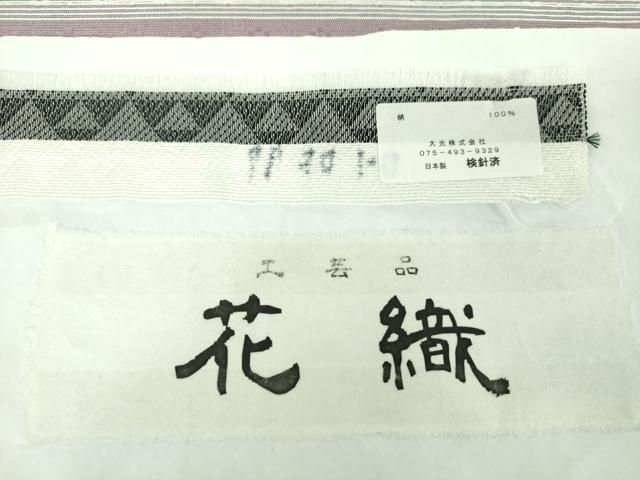 絹 100%
大光株式会社
075-493-9329
日本製 検針済
工芸品
花織